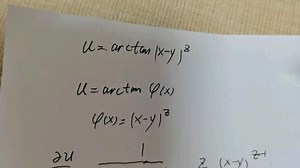 u = arctan (x-y)^z
u = arctan φ(x)
φ(x) = (x-y)^z
∂u 1 z (x-y)^{z-1}